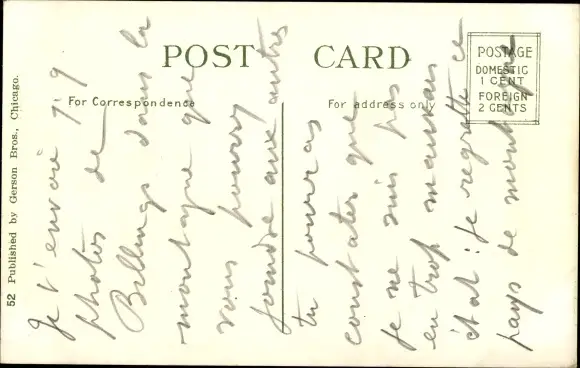 POST CARD
For Correspondence
For address only
POSTAGE
DOMESTIC
1 CENT
FOREIGN
2 CENTS
52 Published by Gerson Bros., Chicago.
Je t'envoie 7.9
photos de
Billings dans la
montagne que
vous pourry
joindre aux autres
tu pourras
constater que
je ne suis pas
en trop mauvais
état : je regrette ce
pays de montagne